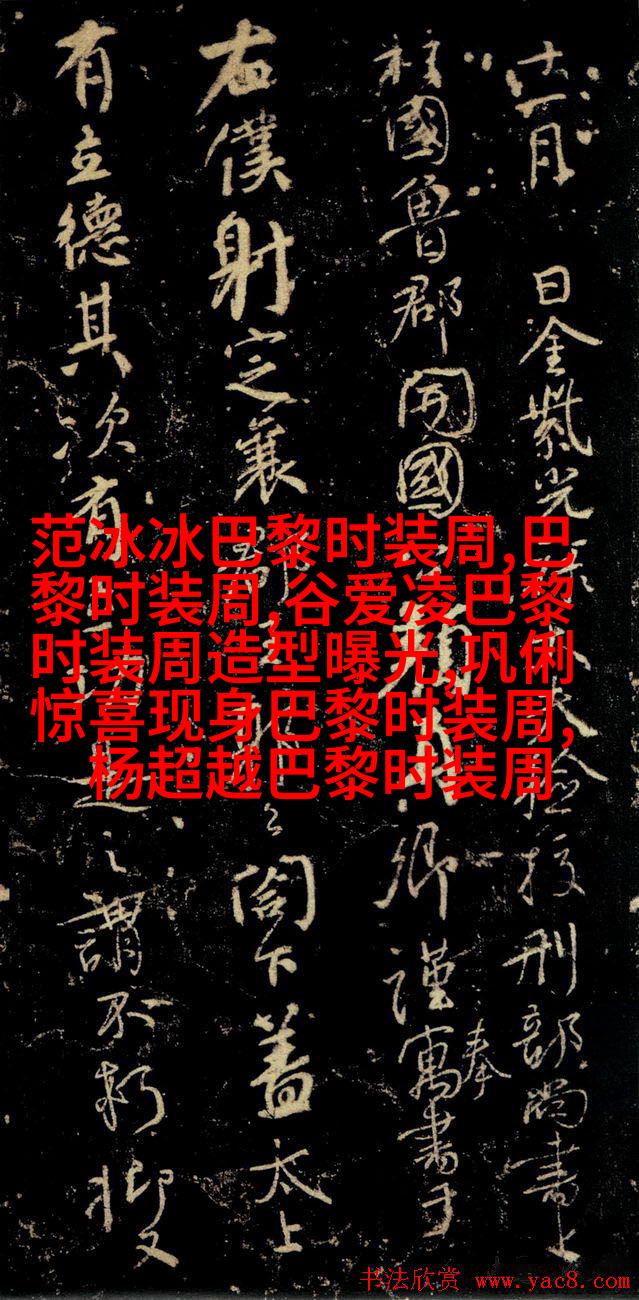 十一月 日金紫光檢校刑部尚書上
柱國魯郡開國卿謹奉寓書于
右僕射定襄郡之閤下蓋太上
有立德其次有之謂不朽抑又
范冰冰巴黎时装周,巴
黎时装周,谷爱凌巴黎
时装周造型曝光,巩俐
惊喜现身巴黎时装周,
杨超越巴黎时装周
书法欣赏 www.yac8.com